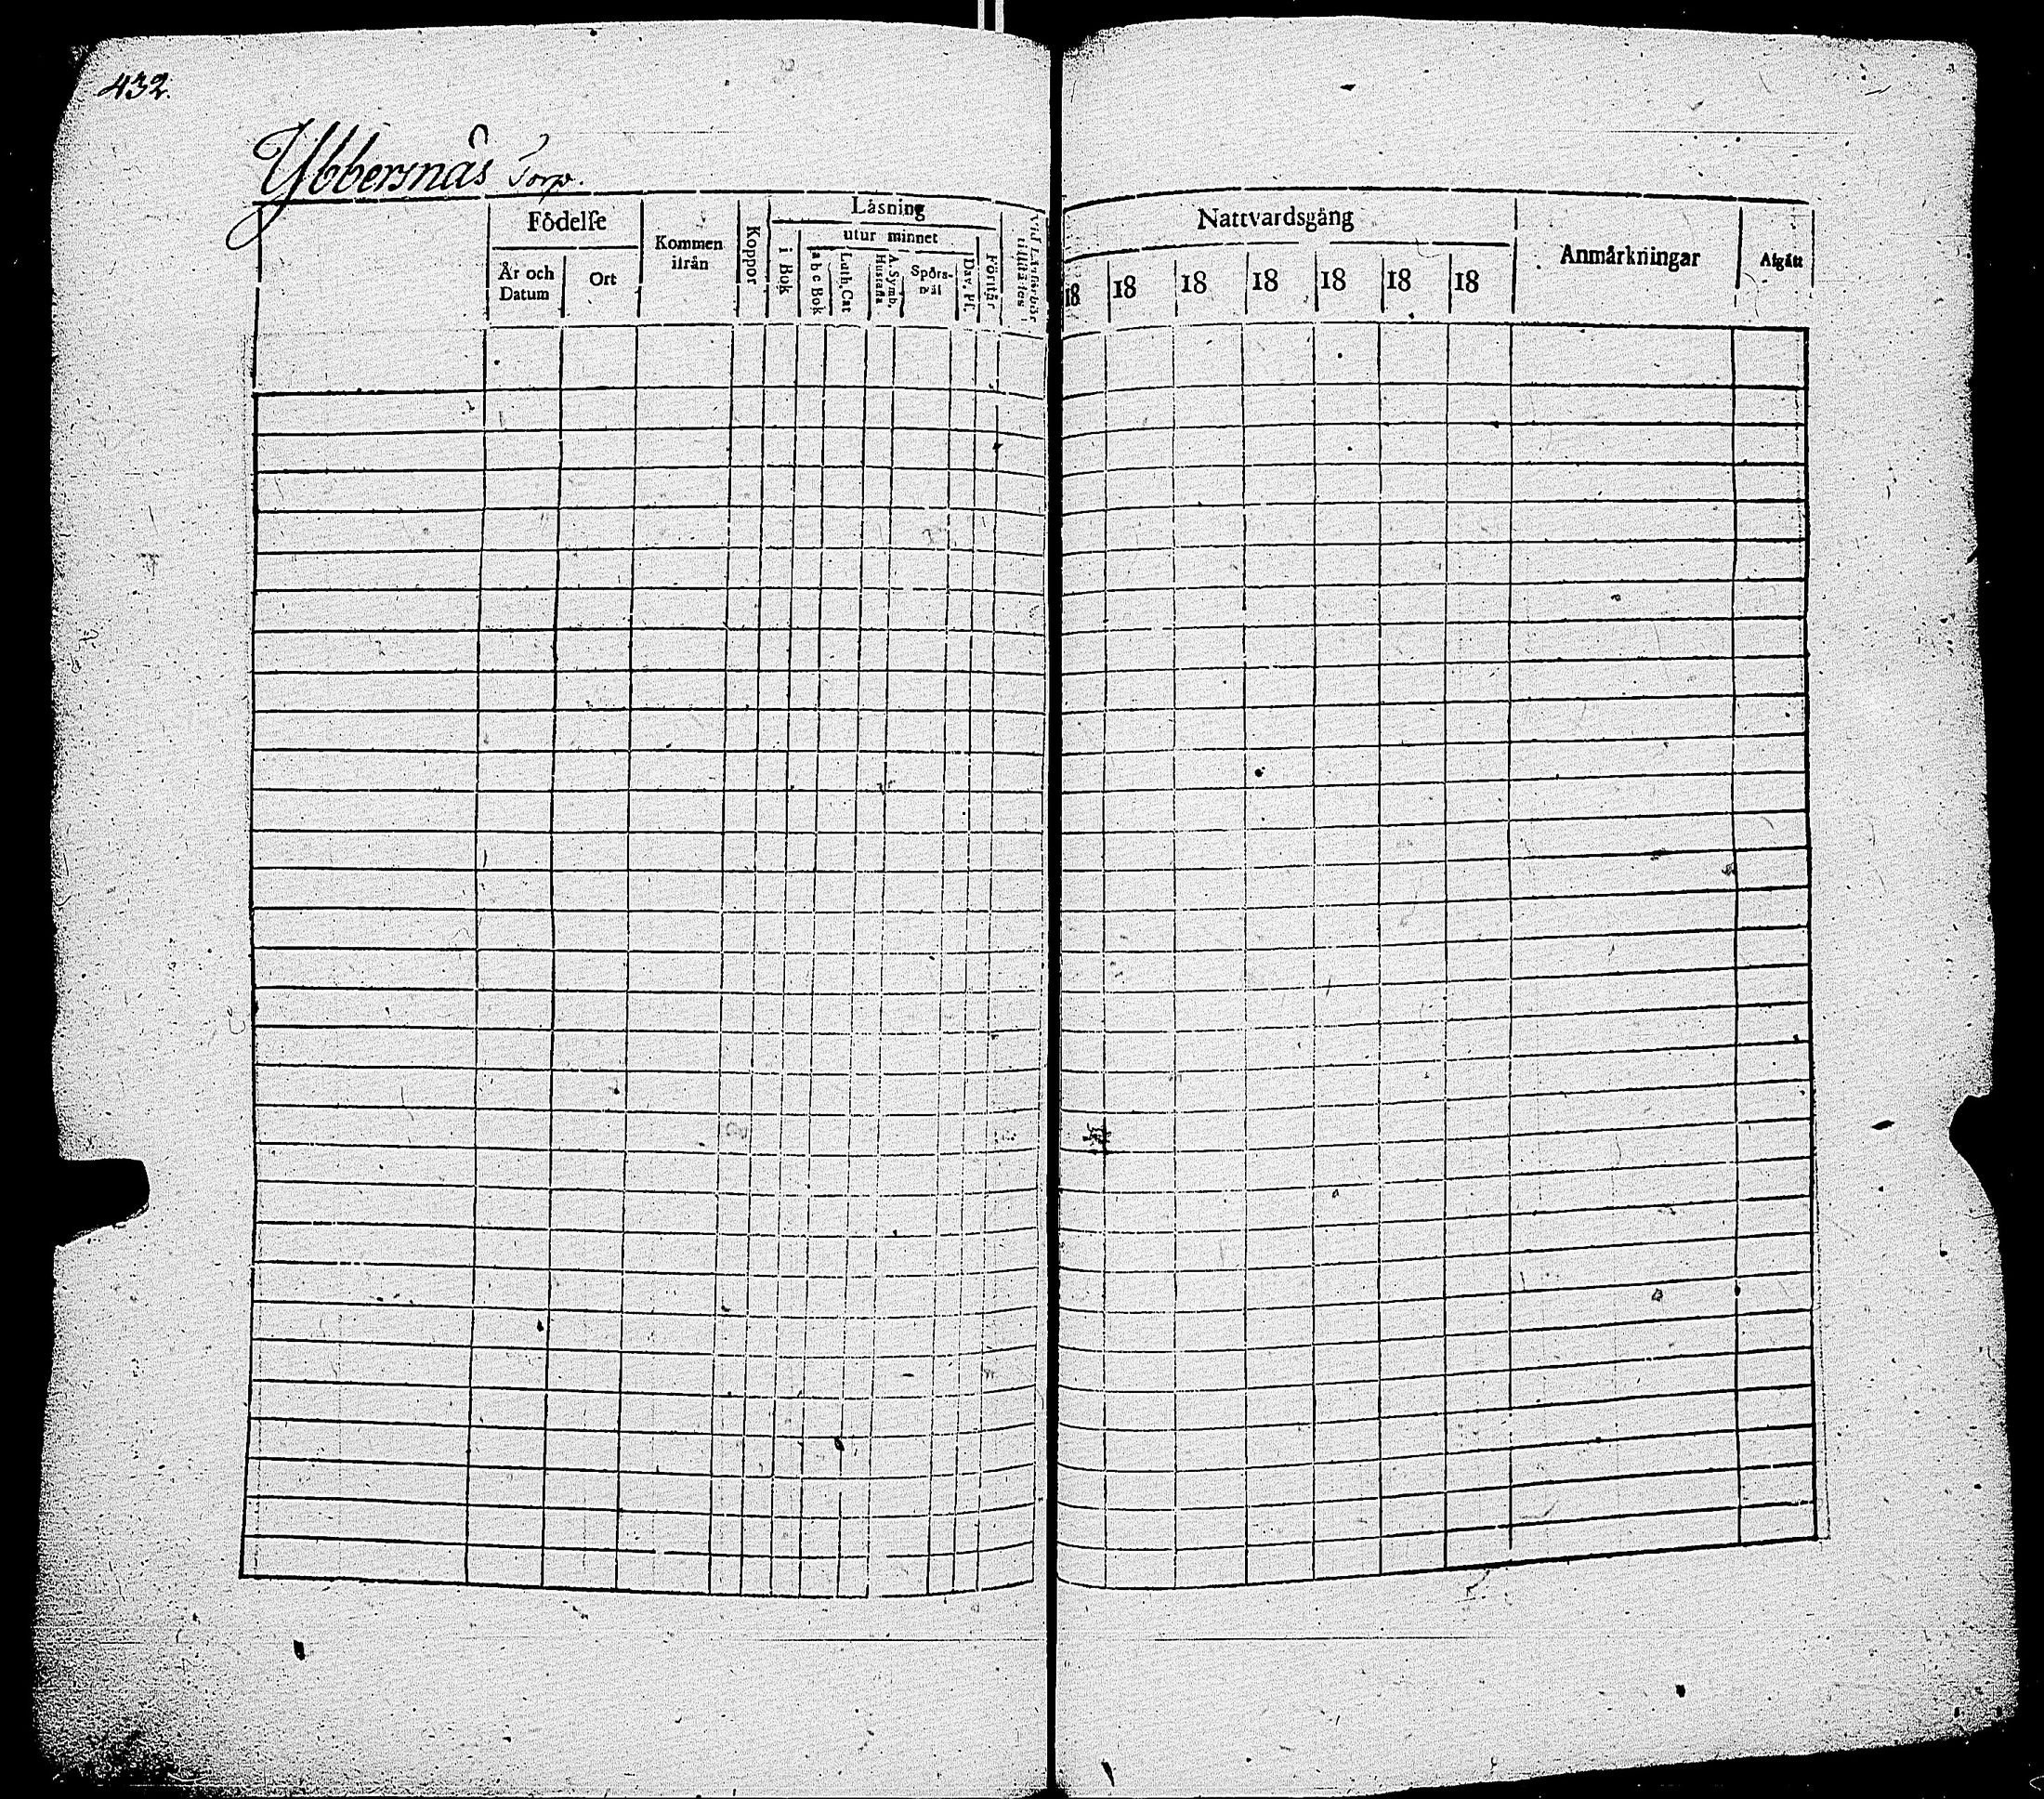 432.
Ybbersnäs Torp.
Födelſe
År och Datum
Ort
Kommen ifrån
Koppor
Läsning
i Bok
utur minnet
a b c Bok
Luth. Cat
A. Symb. Hustafla
Spörs-
mål
Dav. Pſ.
Förſtår
Nattvardsgång
18 18 18 18 18 18 18
Anmärkningar
Afgått